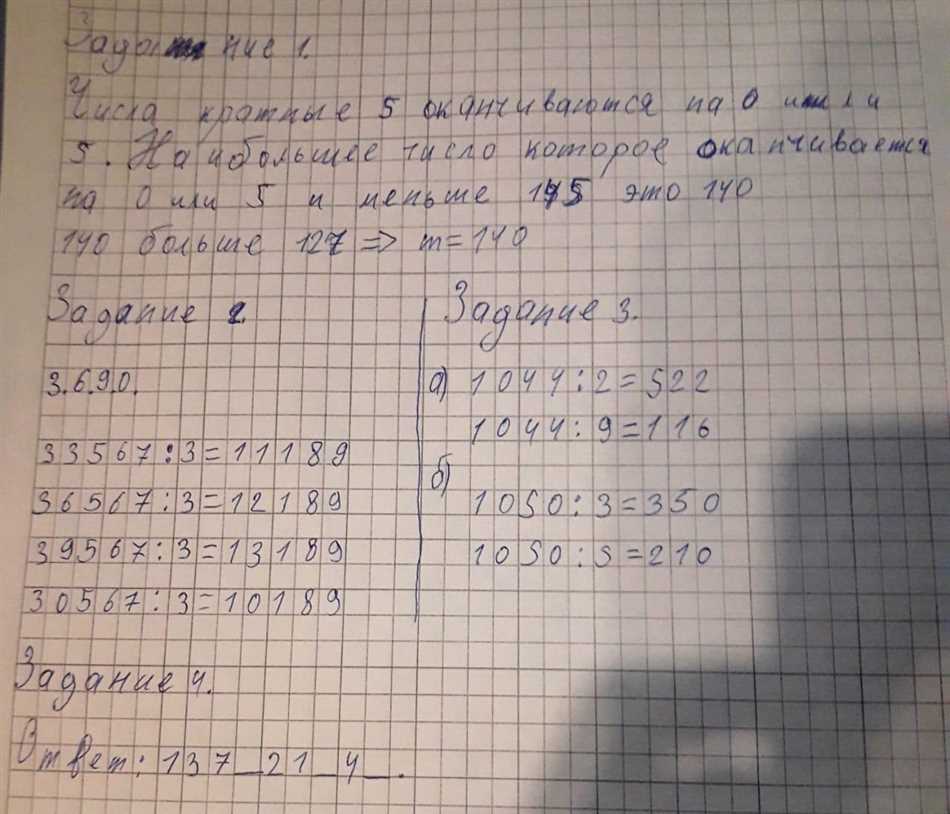 Задание 1.
Числа кратные 5 оканчиваются на 0 или
5. Наибольшее число которое оканчивается
на 0 или 5 и меньше 145 это 140
140 больше 127 => m=140
Задание 2.
3.6.9.0.
33567:3=11189
36567:3=12189
39567:3=13189
30567:3=10189
Задание 3.
а) 1044:2=522
1044:9=116
б)
1050:3=350
1050:5=210
Задание 4.
Ответ: 137_21_4_.